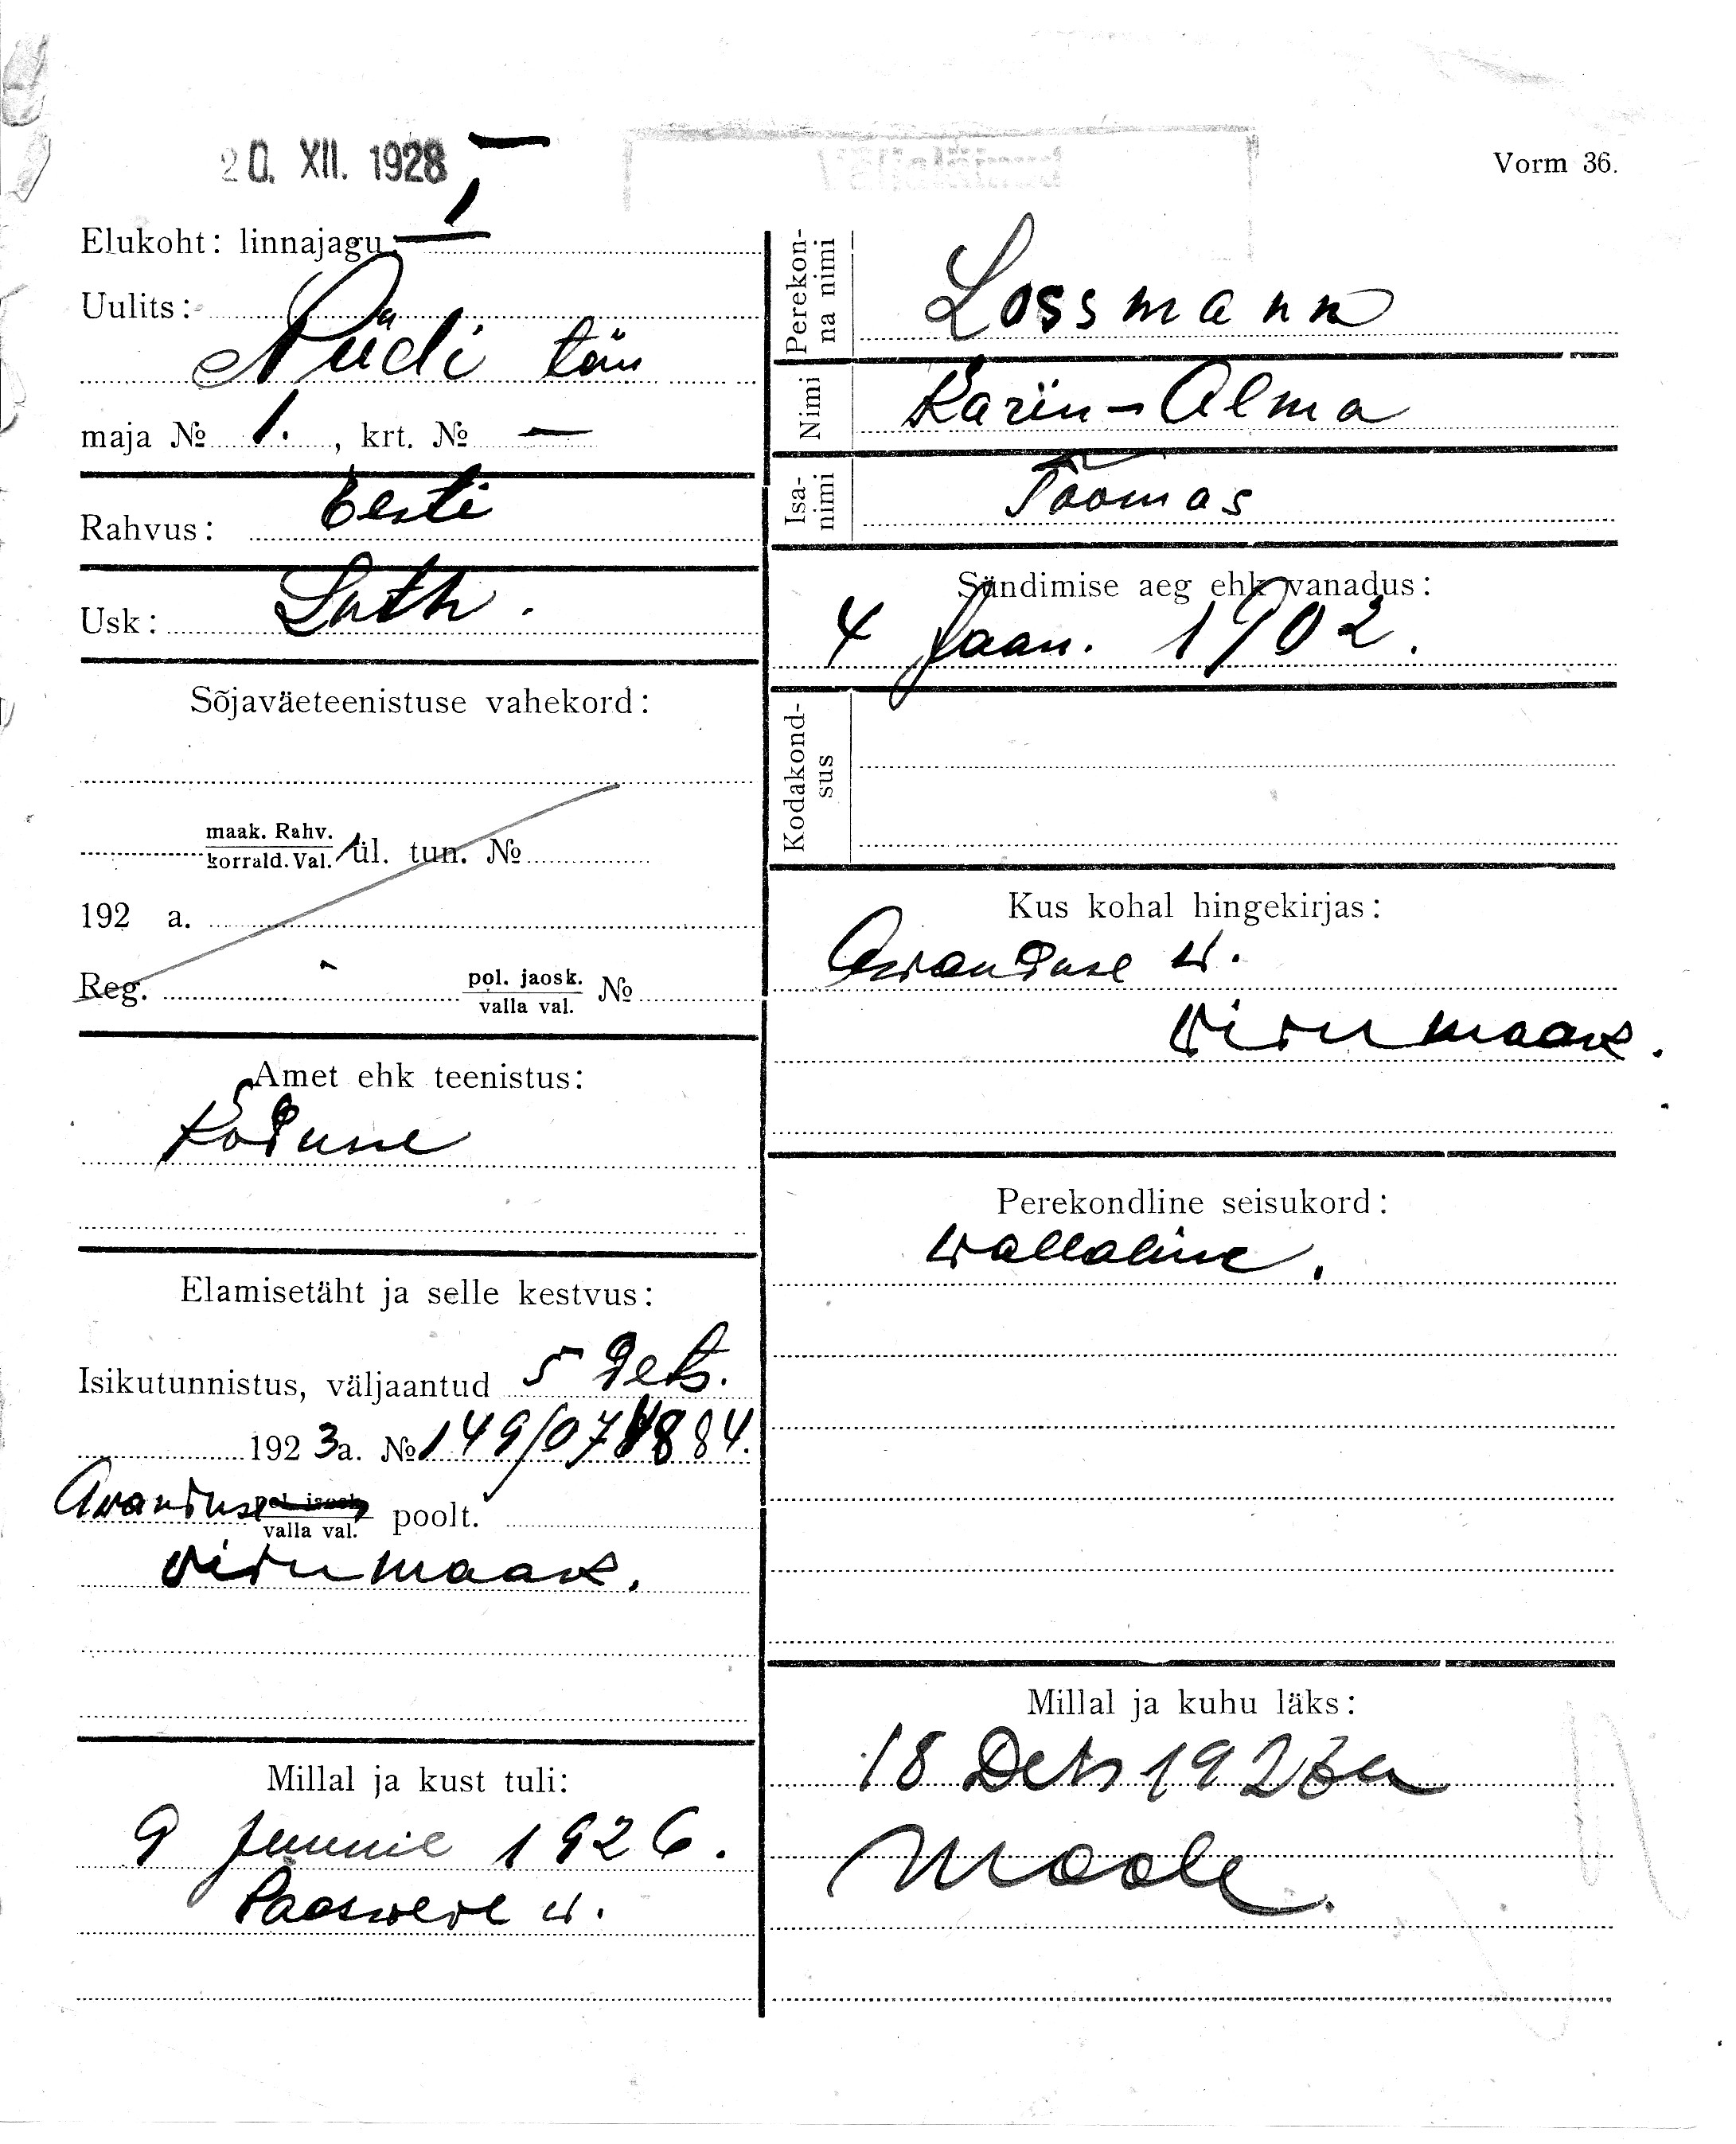 20. XII. 1928
Vorm 36.
Elukoht: linnajagu: I
Uulits:
Püdi tän
maja № 1. , krt. № —
Rahvus: Eesti
Usk: Luth.
Sõjaväeteenistuse vahekord:
maak. Rahv.
korrald. Val. ül. tun. №
192 a.
Reg. pol. jaosk.
valla val. №
Amet ehk teenistus:
Kodune
Elamisetäht ja selle kestvus:
Isikutunnistus, väljaantud 5 Dets.
192 3 a. № 149/
Awanduse pol. jaosk.
valla val. poolt.
Virumaak.
Millal ja kust tuli:
9 Juunil 1926.
Paaswere w.
Perekon-
na nimi
Lossmann
Nimi
Karin-Alma
Isa-
nimi
Toomas
Sündimise aeg ehk vanadus:
4 Jaan. 1902.
Kodakond-
sus
Kus kohal hingekirjas:
Awanduse w.
Virumaak.
Perekondline seisukord:
wallaline.
Millal ja kuhu läks:
18 Dets
Maale.